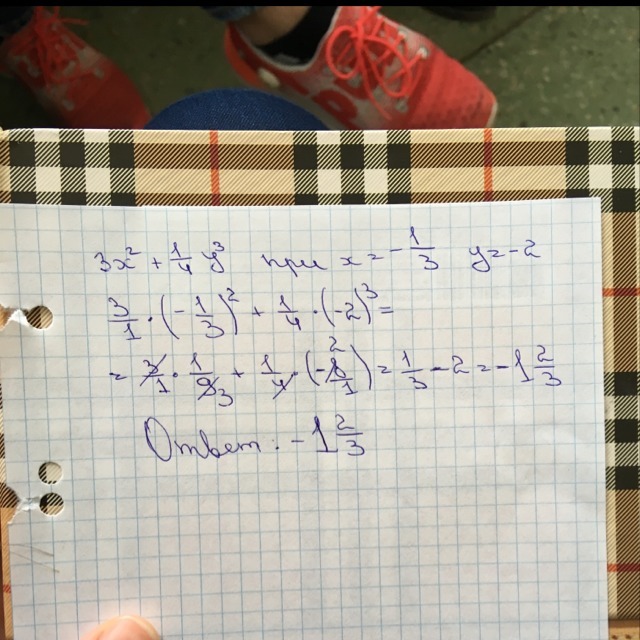 3x² + 1/4 y³ при x = -1/3 y = -2
3/1 · (-1/3)² + 1/4 · (-2)³ =
= 3/1 · 1/9 3 + 1/4 · (-8/1) 2 = 1/3 - 2 = -1 2/3
Ответ: -1 2/3